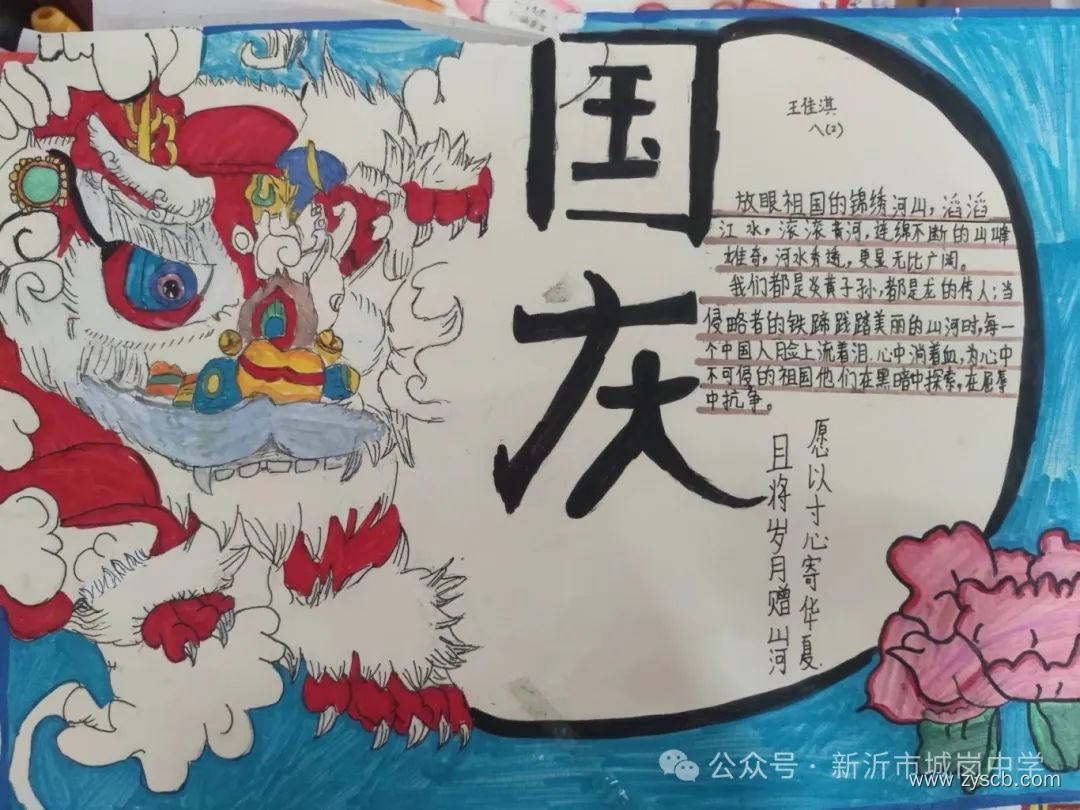 国庆
王佳淇
八(2)
放眼祖国的锦绣河山，滔滔
江水，滚滚黄河，连绵不断的山峰
雄奇，河水秀逸，更显无比广阔。
我们都是炎黄子孙，都是龙的传人；当
侵略者的铁蹄践踏美丽的山河时，每一
个中国人脸上流着泪.心中淌着血，为心中
不可侵的祖国他们在黑暗中探索，在屈辱
中抗争。
愿以寸心寄华夏
且将岁月赠山河
公众号·新沂市城岗中学
www.zyscb.com